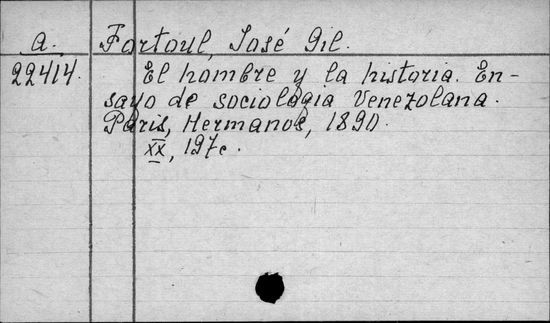 A. Fortoul, José Gil.
22414. El hombre y la historia. En-
sayo de sociologia Venezolana.
Paris, Hermanos, 1890.
XX, 197c.